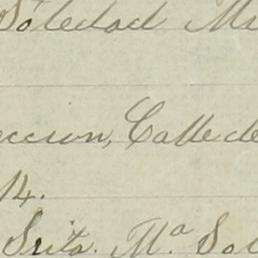 Soledad M
eccion, Calle de
14.
Srita. Mª. Sol